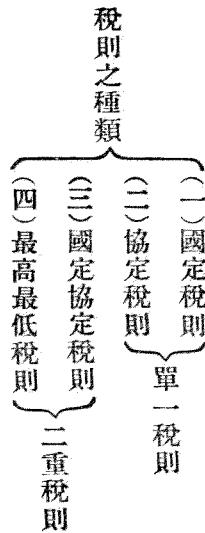 稅則之種類
(一)國定稅則
(二)協定稅則
單一稅則
(三)國定協定稅則
(四)最高最低稅則
二重稅則